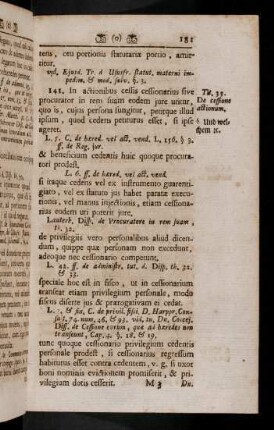 (o) 181
tenu, ceu portionis statutariæ portio, amit-
titur.
vid. Ejusd. Tr. d. Usufr. statut. materni im-
pedim. & mod. solv. §. 3.
141. In actionibus cessis cessionarius sive
procurator in rem suam eodem jure utitur,
quo is, cujus persona fungitur, petitque illud
ipsum, quod cedens petiturus esset, si ipse
ageret.
L. 5. C. de hæred. vel act. vend. L. 156. §. 3.
ff. de Reg. jur.
& beneficium cedentis huic quoque procura-
tori prodest,
L. 6. ff. de hæred. vel act. vend.
si itaque cedens vel ex instrumento guarenti-
giato, vel ex statuto jus habet paratæ execu-
tionis, vel manus injectionis, etiam cessiona-
rius eodem uti poterit jure,
Lauterb. Disp. de Procuratore in rem suam,
th. 32.
de privilegiis vero personalibus aliud dicen-
dum, quippe quæ personam non excedunt,
adeoque nec cessionario competunt,
L. 42. ff. de administr. tut. d. Disp. th. 32.
& 33.
speciale hoc est in fisco, ut in cessionarium
transeat etiam privilegium personale, modo
fiscus diserte jus & prærogativam ei cedat.
fin. C. de privil. fisci, D. Harppr. Con-
sult. 74. num. 26. & 93. vid. in. Dn. Coccej.
Disp. de Cessione eorum, quæ ad hæredes non
transeunt, Cap. 4. §. 18. & 19.
tunc quoque cessionario privilegium cedentis
personale prodest, si cessionarius regressum
habiturus esset contra cedentem, v. g. si uxor
boni nominis evictionem promiserit, & pri-
vilegiam dotis cesserit.
M 3 Du.
Tit. 33.
De cessione
actionum.
Und wel-
chem ic.